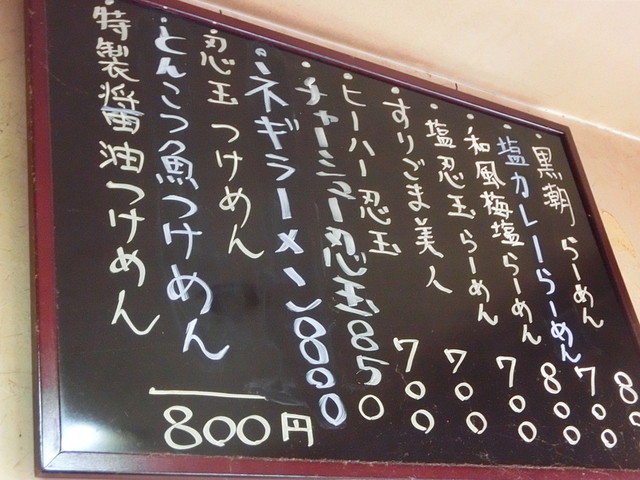 黒潮 らーめん 80
塩カレーらーめん 700
和風梅塩らーめん 800
塩忍玉らーめん 700
すりごま美人 700
ヒーハー忍玉 700
チャーシュー忍玉 850
ネギラーメン 800
忍玉 つけめん
とんこつ魚つけめん
特製醤油つけめん
800円